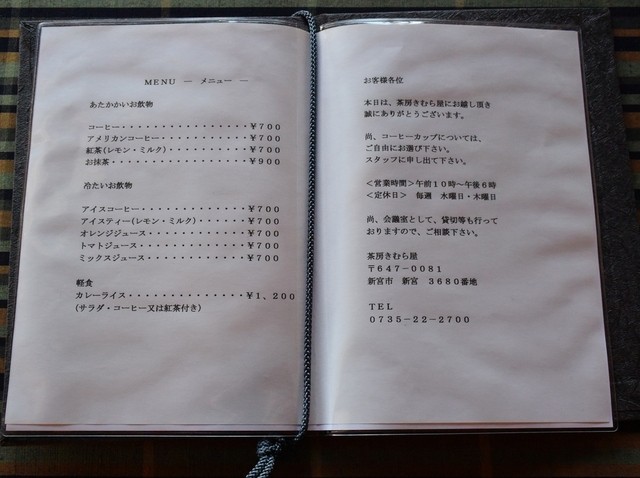 MENU ― メニュー ―
あたかかいお飲物
コーヒー・・・・・・・・・・・・・・・・¥700
アメリカンコーヒー・・・・・・・・・・・¥700
紅茶(レモン・ミルク)・・・・・・・・・・¥700
お抹茶・・・・・・・・・・・・・・・・・¥900
冷たいお飲物
アイスコーヒー・・・・・・・・・・・・・¥700
アイスティー(レモン・ミルク)・・・・・・¥700
オレンジジュース・・・・・・・・・・・・¥700
トマトジュース・・・・・・・・・・・・・¥700
ミックスジュース・・・・・・・・・・・・¥700
軽食
カレーライス・・・・・・・・・・・・・・¥1,200
(サラダ・コーヒー又は紅茶付き)
お客様各位
本日は、茶房きむら屋にお越し頂き
誠にありがとうございます。
尚、コーヒーカップについては、
ご自由にお選び下さい。
スタッフに申し出て下さい。
<営業時間>午前10時~午後6時
<定休日> 毎週 水曜日・木曜日
尚、会議室として、貸切等も行って
おりますので、ご相談下さい。
茶房きむら屋
〒647-0081
新宮市 新宮 3680番地
TEL
0735-22-2700